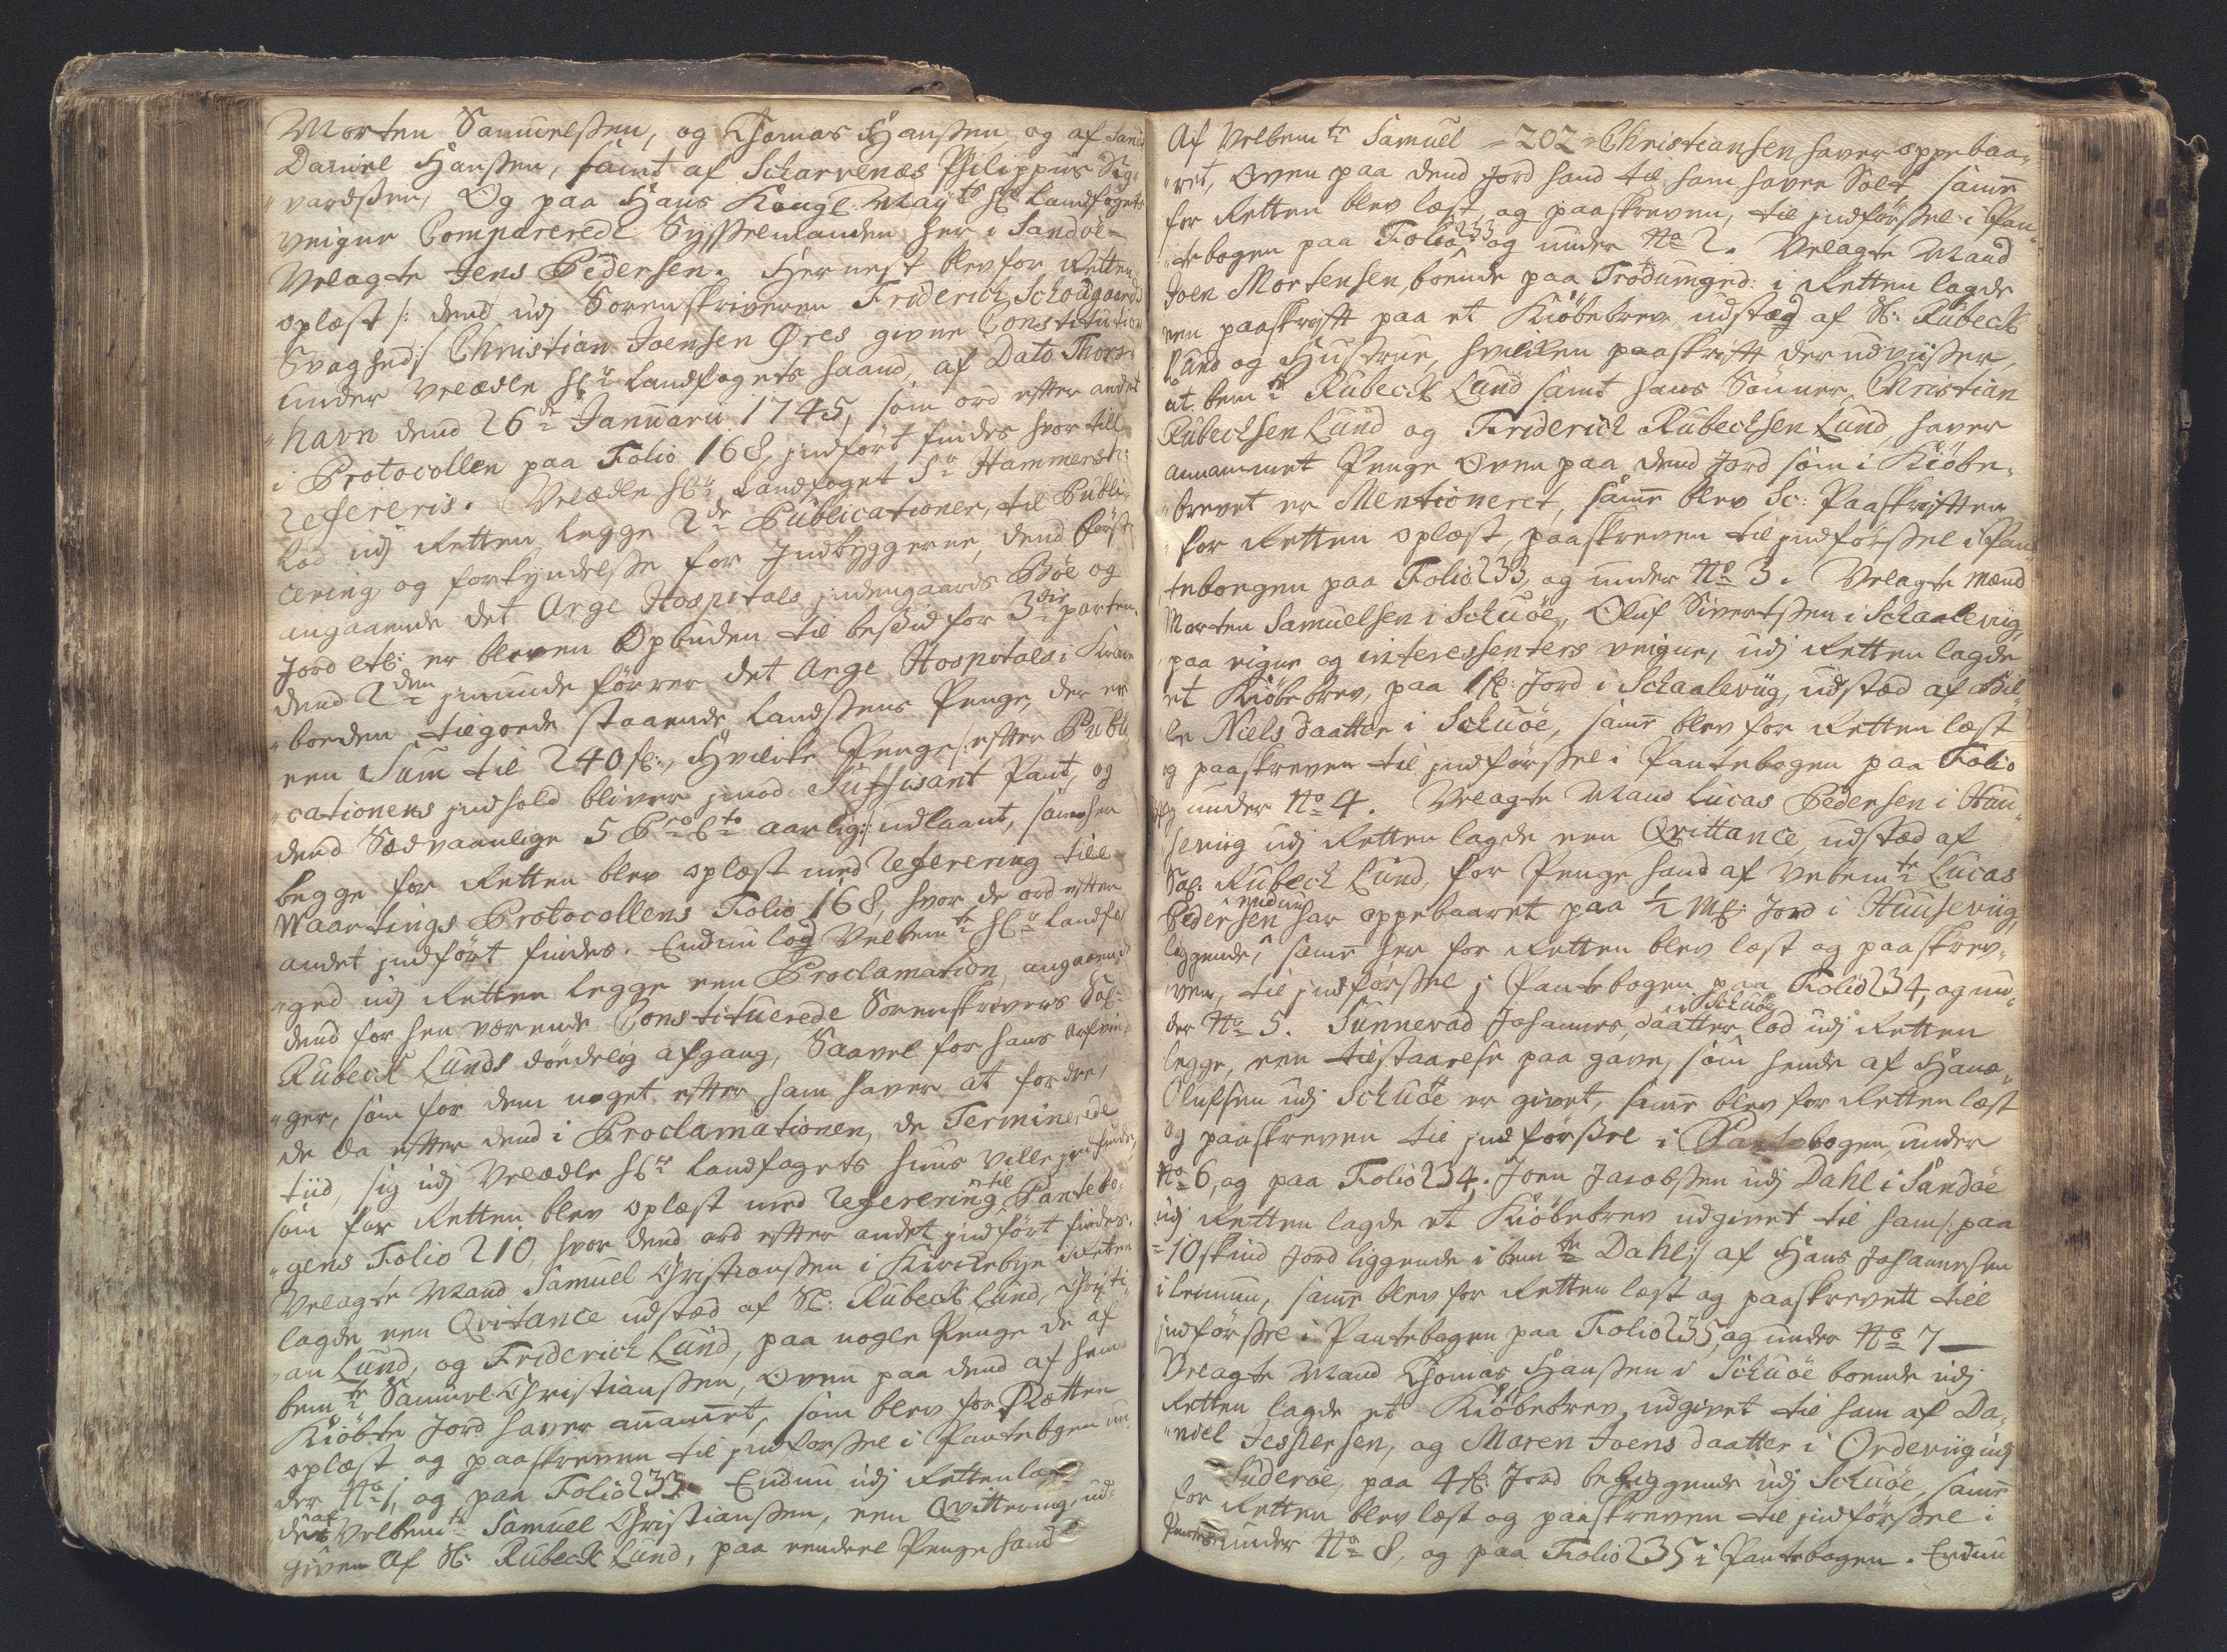 Morten Samuelssen, og Thomas Hanssen og af Sand
Daniel Hanssen, samt af Scharvenæs Philippus Sig¬
vardssen, Og paa Hans Kongl. Mayts Hr Landfogets
veigne Comparerede Sysselmanden her i Sandöe
Velagte Jens Pedersen. Hernest blev for Retten
oplæst /: dend udj Sorenskriveren Friderich Schougaards
Svaghed:/ Christian Joensen Øres givne Constitution
under Velædle Hr Landfogets haand, af Dato Thors¬
havn dend 26de Januarii 1745, som ord efter andet
i Protocollen paa Folio 168, indfört findes hvor till
refereris. Velædle Hr Landfoget Sr Hammersh:
lod udj Retten legge 2de Publicationer, til Publi¬
cering og forkyndelsse for Indbyggerne, dend förste
angaaende det Arge Hospitals indengaards Böe og
Jord etc: er bleven Opbuden til besid for 3die parten,
dend 2den jmunde förrer det Arge Hospitals i
boeden tilgoede staaende Landssens Penge, der er
een Sum til 240 fl:, Hvilcke Penge /: efter Publi
cationens indhold bliver jmod Suffisant Pant, og
dend Sædvaanlige 5 Pro Cto aarlig:/ udlaant, som her
begge for Retten blev oplæst med Referering till
Waartings Protocollens Folio 168, hvor de ord efter
andet indfört findes. Endnu lod Velbemte Hr Landfo
ged udj Retten legge een Proclamation, angaaende
dend for hen værende Constituerede Sorenskrivers Sal:
Rubeck Lunds döedelig afgang, Saavel for hans arfvin¬
ger, som for dem noget efter ham haver at fordre,
de da efter dend i Proclamationen, de Terminerede
tiid, sig udj Velædle Hr Landfogets huus ville indfinde,
som for Retten blev oplæst med Referering til Pantebo¬
gens Folio 210, hvor dend ord efter andet indfört findes.
Velagte Mand Samuel Christianssen i Kirckebye i Retten
lagde een Qvitance udstæd af Sl: Rubeck Lund, Christi
an Lund, og Friderich Lund, paa nogle Penge de af
bemte Samuel Christianssen, Oven paa dend af hem
Kiöbte Jord haver anammet, som blev for Rætten
oplæst og paaskreven til indförssel i Pantebogen un
der No 1, og paa Folio 233. Endnu udj Retten lag
des af Velbemte Samuel Christianssen, een Qvittering, ud¬
given af Sl: Rubeck Lund, paa eendeel Penge hand
Af Velbemte Samuel = 202 = Christiansen haver oppebaa¬
ret, Oven paa dend Jord hand til ham haver Solt, samme
for Retten blev læst, og paaskreven, til indförssel i Pan¬
tebogen paa Folio 233 og under No 2. Velagte Mand
Joen Mortensen, boende paa Trödumged: i Retten lagde
een paaskrift paa et Kiöbebrev udstæd af Sl: Rubeck
Lund og Hustrue, hvilcken paaskrift der udviisser,
at bemte Rubeck Lund samt hans Sönner Christian
Rubechsen Lund og Friderich Rubechsen Lund, haver
annammet Penge Oven paa dend Jord som i Kiöbe¬
brevet er Mentioneret, samme blev Sc: Paaskriften
for Retten oplæst, paaskreven til indförssel i Pan
teboegen paa Folio 233, og under No 3. Velagte Mænd
Morten Samuelsen i Schuöe, Oluf Sivertssen i Schaalevüg,
paa eigne og interessenters veigne, udj Retten lagde
et Kiöbebrev, paa 1 fl: Jord i Schaalevüg, udstæd af Bil
le Niels daatter i Schuöe, samme blev for Retten læst
og paaskreven til indförssel i Pantebogen paa Folio
og under No 4. Velagte Mand Lucas Pedersen i Huu¬
sevüg udj Retten lagde een Qvittance, udstæd af
Sal: Rubeck Lund, for Penge hand af Velbemte Lucas
Pedersen endnu har oppebaaret paa 1/2 Mk: Jord i Huusevüg
liggende, samme her for Retten blev læst og paaskrev¬
ven, til indförssel j Pantebogen paa Folio 234, og un¬
der No 5. Sunnevad Johannes daatter i Schuöe lod udj Retten
legge, een tilstaaelse paa gave, som hende af Hans
Olufsen udj Schuöe er givet, samme blev for Retten læst
og paaskreven til indförssel i Pantebogen, under
No 6, og paa Folio 234. Joen Jacobssen udj Dahl i Sandöe
udj Retten lagde et Kiöbebrev udgivet til ham /: paa
10 skind Jord liggende i bemte Dahl:/ af Hans Johannesen
i Lemmu, samme blev for Retten læst og paaskrevett till
indförssel i Pantebogen paa Folio 235, og under No 7 —
Velagte Mand Thomas Hanssen i Schuöe boende udj
Retten lagde et Kiöbebrev, udgivet til ham af Da¬
niel Jespersen, og Maren Joens daatter i Ordevüg udj
Suderöe, paa 4 fl: Jord beliggende udj Schuöe, samme
for Retten blev læst og paaskreven til indförssel i
under No 8, og paa Folio 235 i Pantebogen. Endnu